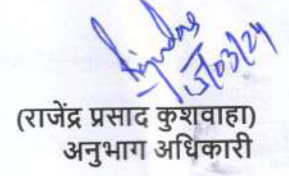 15/03/24
(राजेंद्र प्रसाद कुशवाहा)
अनुभाग अधिकारी